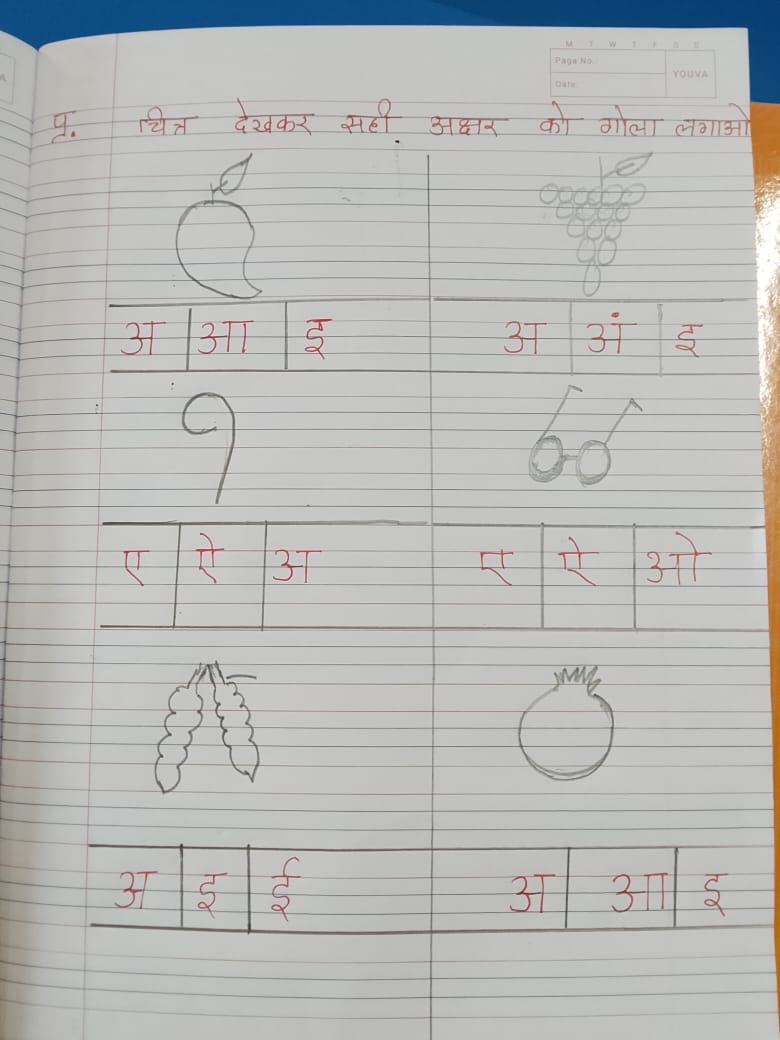 M T W T F S S
Page No.:
YOUVA
Date:
प्र. चित्र देखकर सही अक्षर को गोला लगाओ
अ आ इ
अ अं इ
१
ए ऐ अ
ए ऐ ओ
अ इ ई
अ आ इ